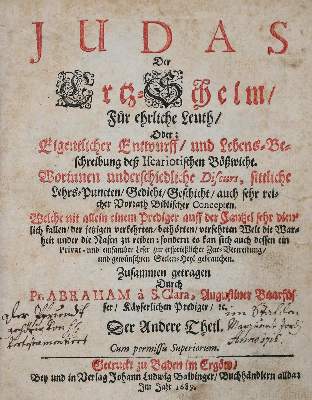 JUDAS
Der
Ertz-Schelm/
Für ehrliche Leuth/
Oder:
Eigentlicher Entwurff/ und Lebens-Be-
schreibung deß Iscariotischen Bößwicht.
Worinnen underschiedliche Discurs, sittliche
Lehrs-Puncten/ Gedicht/ Geschicht/ auch sehr rei-
cher Vorrath Biblischer Concepten.
Welche nit allein einem Prediger auff der Cantzel sehr dien-
lich fallen/ der jetzigen verkehrten/ bethörten/ versehrten Welt die War-
heit under die Nasen zu reiben: sondern es kan sich auch dessen ein
Privat- und einsamber Leser zur ersprießlicher Zeit-Vertreibung/
und gewünschten Seelen-Heyl gebrauchen.
Zusammen getragen
Durch
Pr. ABRAHAM à S. Clara, Augustiner Baarfös-
ser/ Käyserlichen Prediger/ etc.
Der Andere Theil.
Cum permissu Superiorum.
Getruckt zu Baden im Ergöw/
Bey und in Verlag Johann Ludwig Baldinger/ Buchhändlern allda/
Im Jahr 1689.